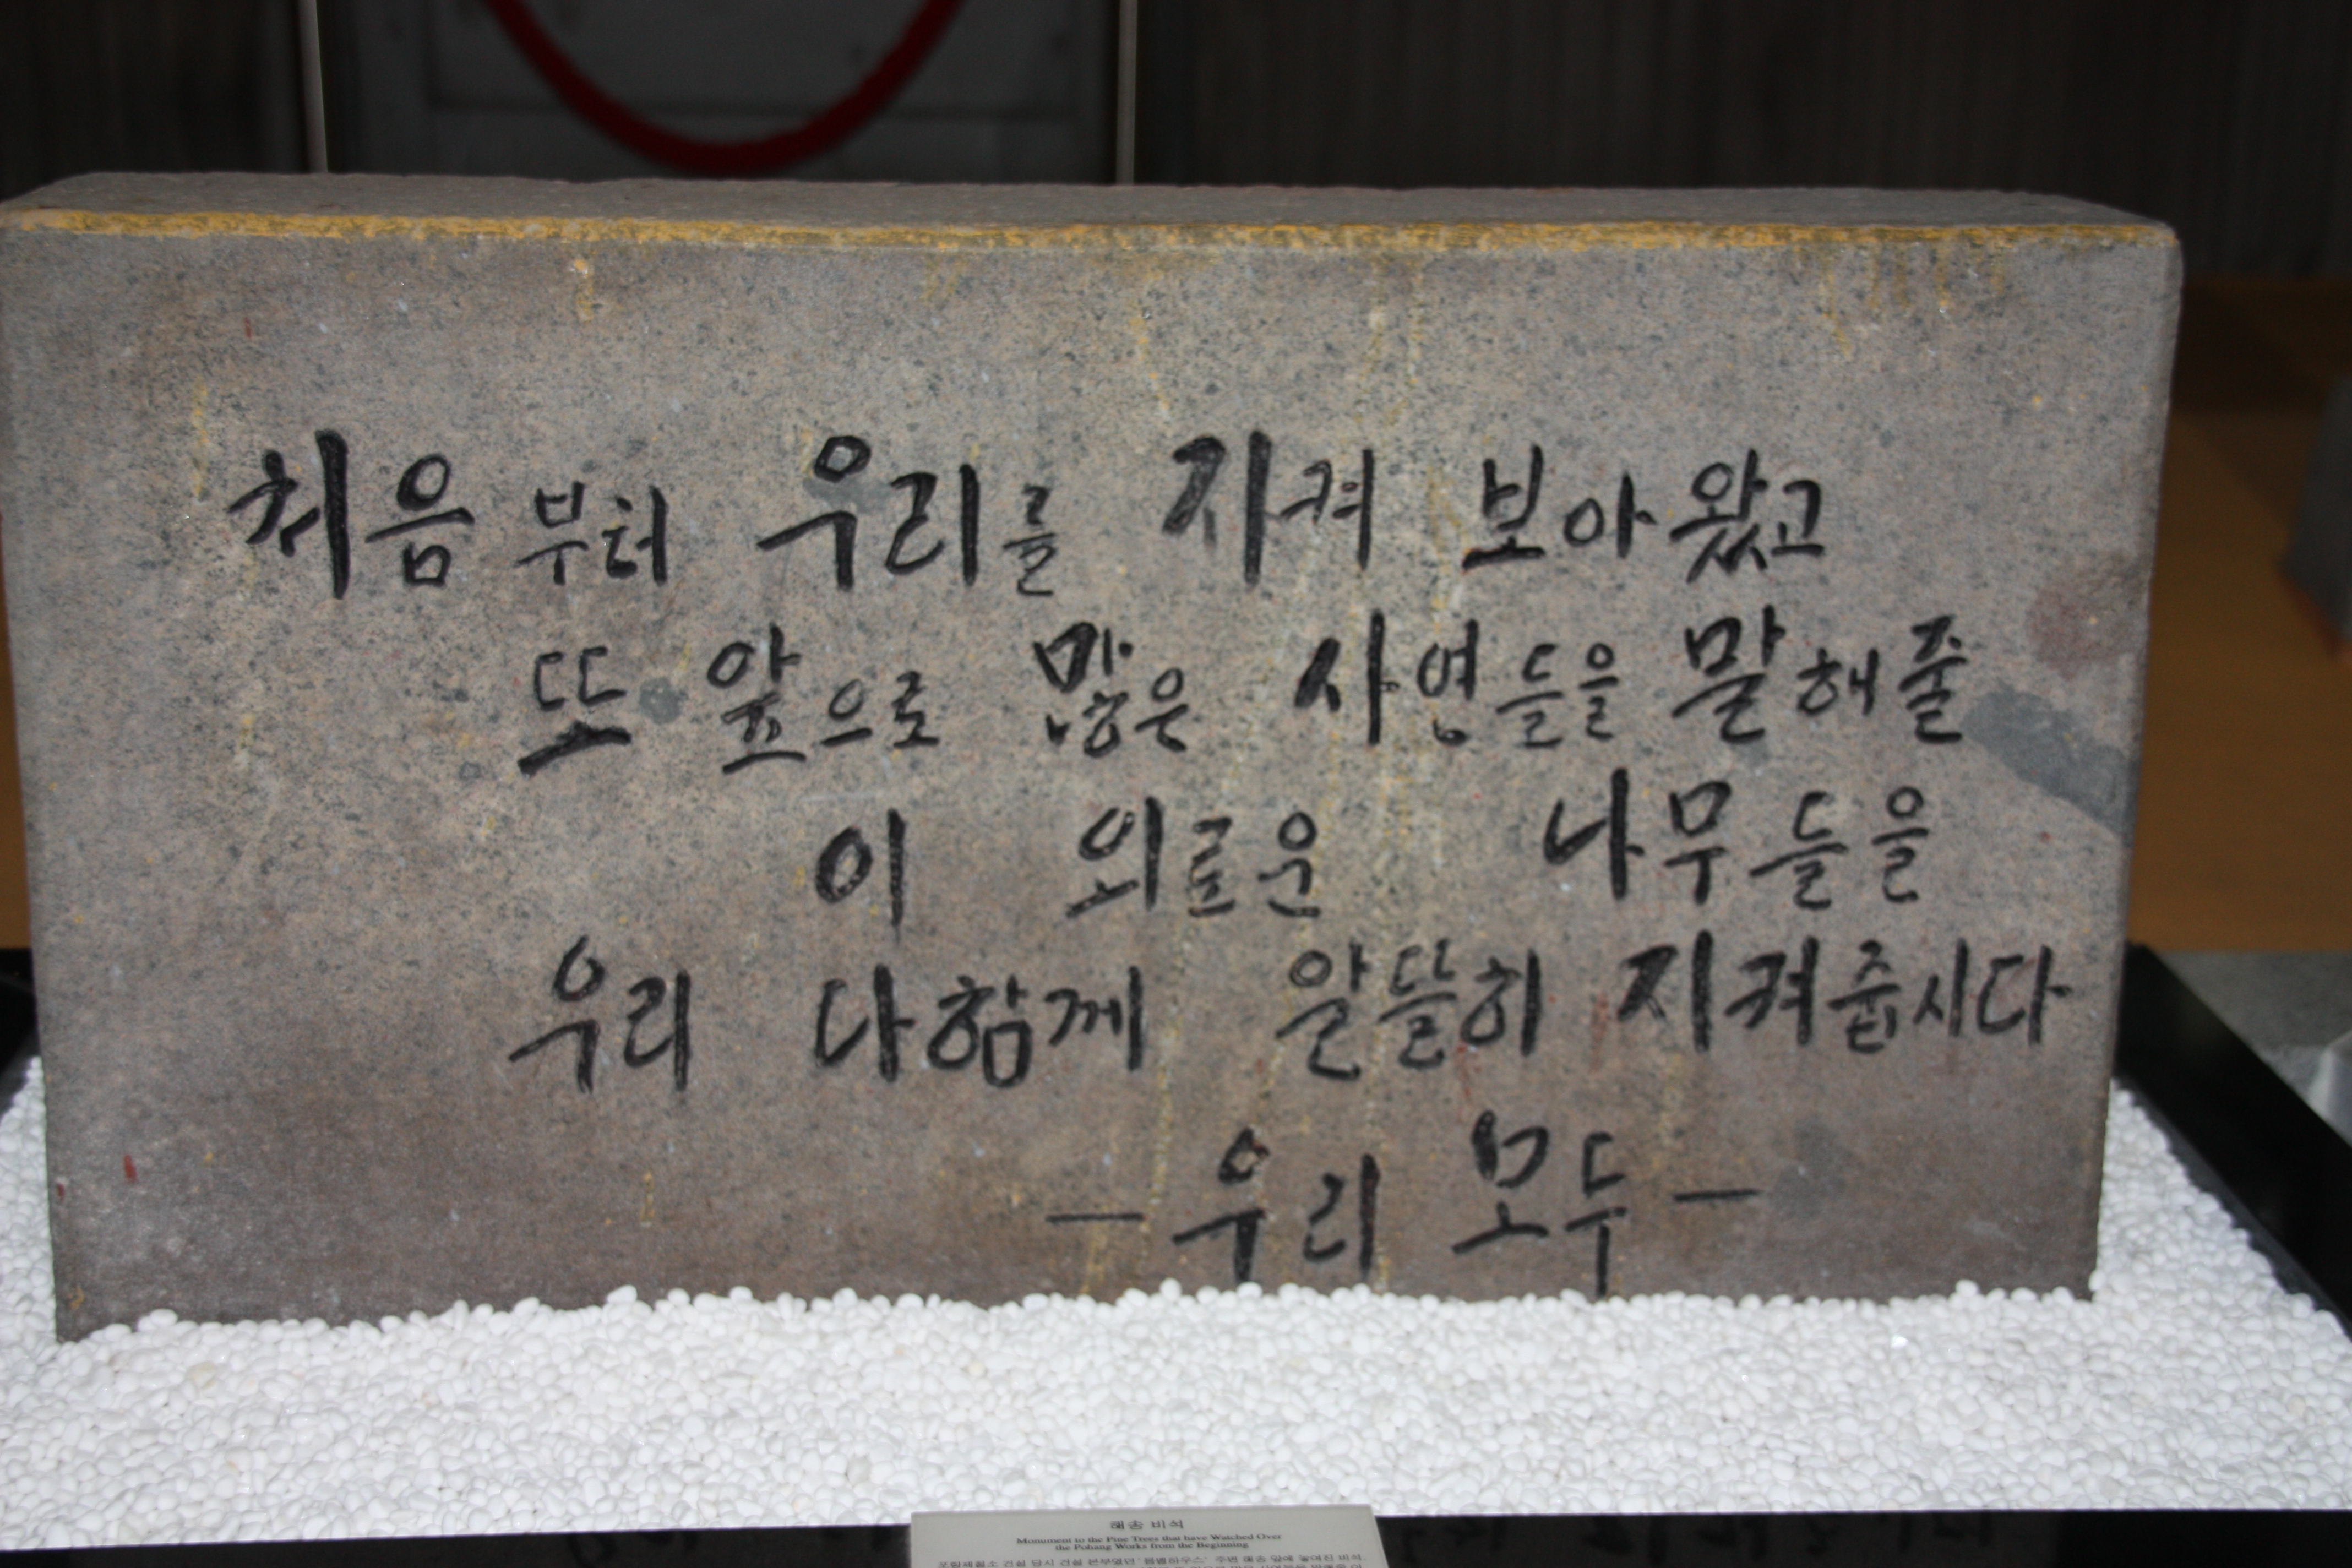 처음부터 우리를 지켜 보아왔고
또 앞으로 많은 사연들을 말해줄
이 외로운 나무들을
우리 다함께 알뜰히 지켜줍시다
— 우리 모두 —
해송 비석
Monument to the Pine Trees that have Watched Over
the Pohang Works from the Beginning
포항제철소 건설 당시 건설 본부였던 '롬멜하우스' 주변 해송 앞에 놓여진 비석.